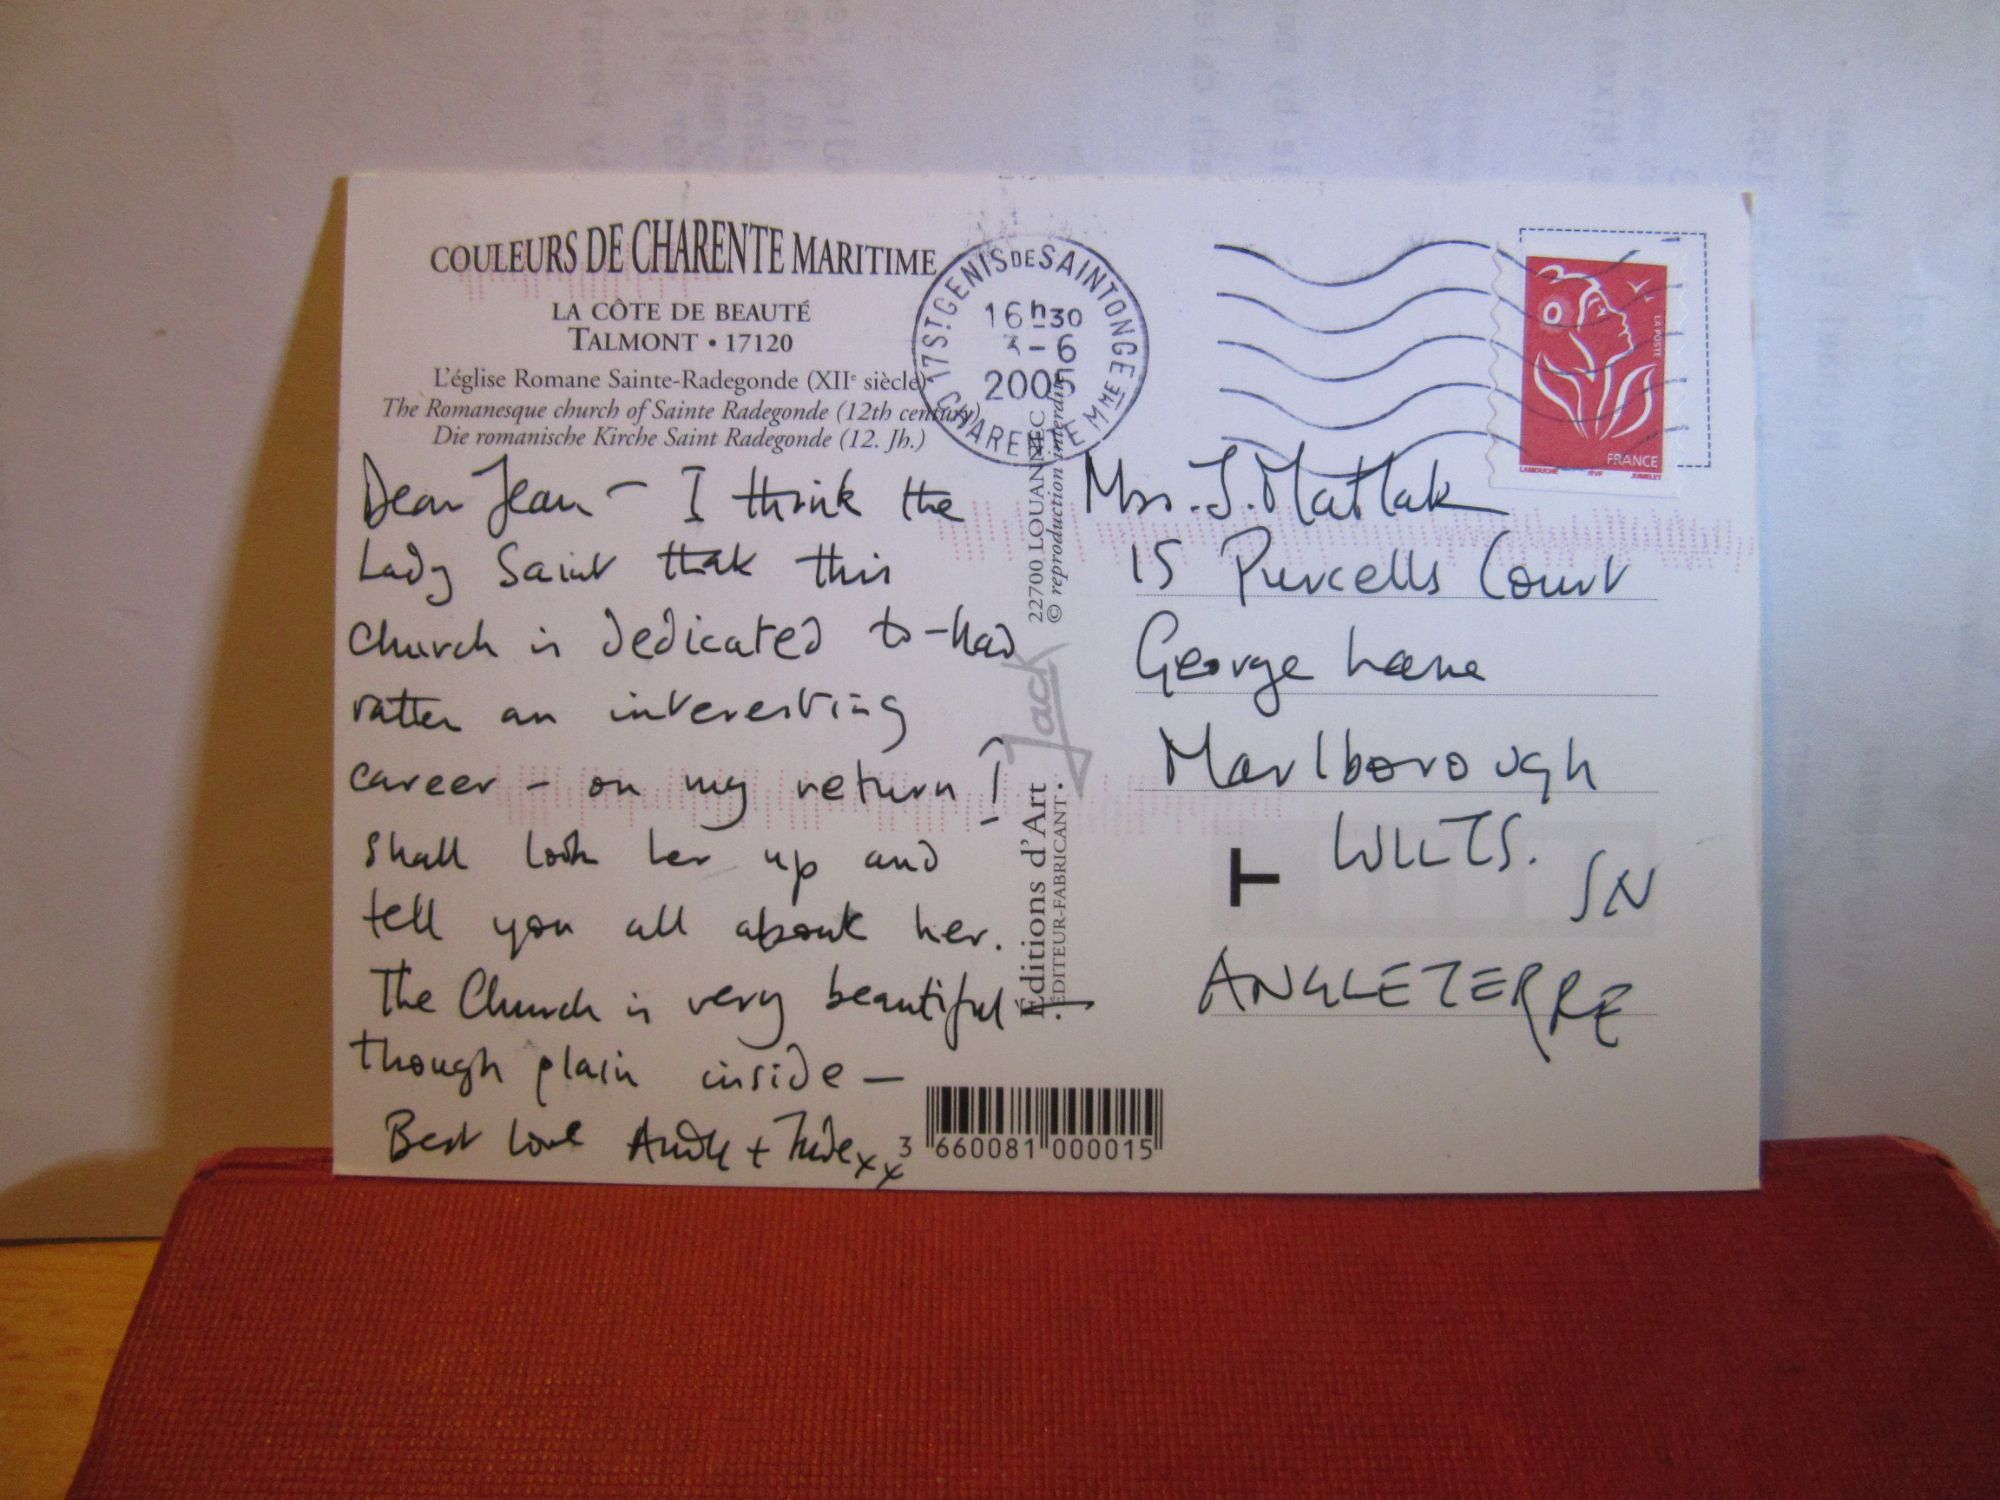 COULEURS DE CHARENTE MARITIME
LA CÔTE DE BEAUTÉ
TALMONT • 17120
L'église Romane Sainte-Radegonde (XIIe siècle)
The Romanesque church of Sainte Radegonde (12th century)
Die romanische Kirche Saint Radegonde (12. Jh.)
Dear Jean - I think the
Lady Saint that this
Church is dedicated to - had
rather an interesting
career - on my return I
shall look her up and
tell you all about her.
The Church is very beautiful
though plain inside -
Best love + xx
17 ST GENIS DE SAINTONGE
16h30
-6
2005
CHARENTE MME
22700 LOUANNEC
© reproduction interdite
Jack
Éditions d'Art
ÉDITEUR-FABRICANT •
LA POSTE
FRANCE
LAMOUCHE ITVF JUMELET
Mrs. J. Matlak
15 Purcells Court
George Lane
Marlborough
WILTS.
T
SN
ANGLETERRE
3 660081 000015